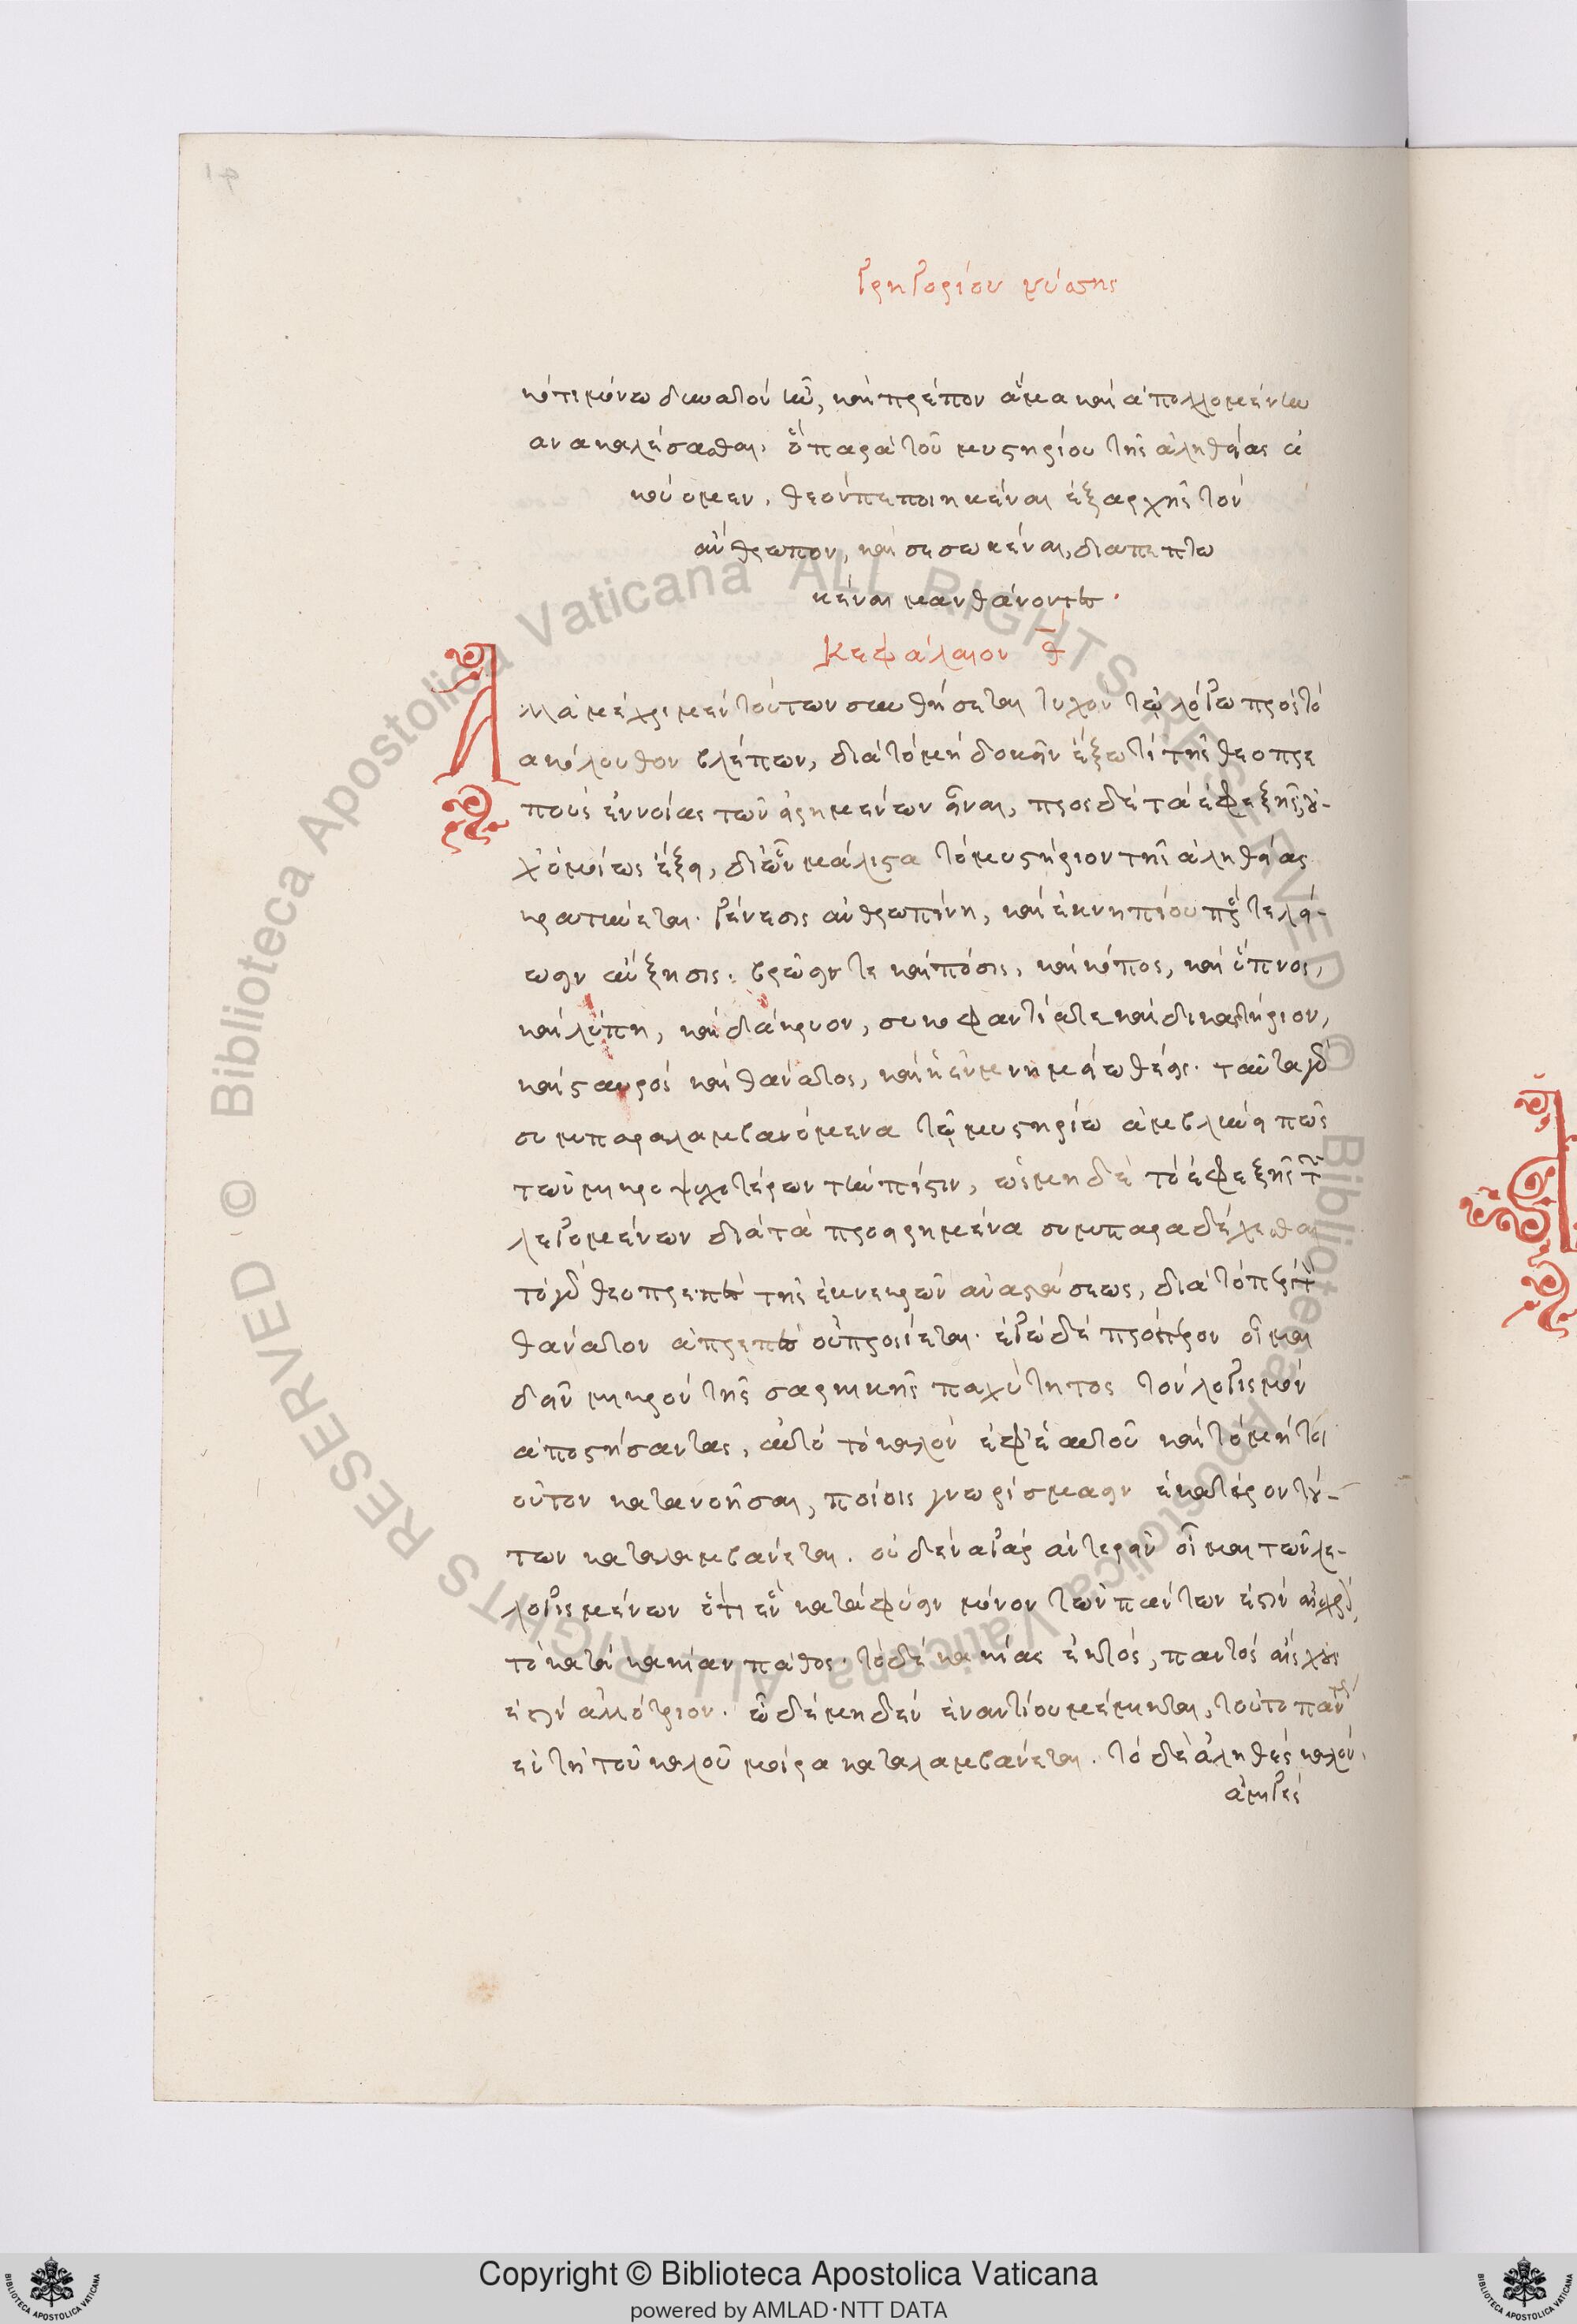 Γρηγορίου νύσης
κότι μόνω δυνατὸν ἦν, καὶ πρέπον ἅμα καὶ ἀπολλομένην
ανακαλέσασθαι. ὃ παρὰ τοῦ μυστηρίου τῆς ἀληθείας ἀ
κούομεν, θεὸν πεποιηκέναι ἐξαρχῆς τὸν
ἄνθρωπον, καὶ σεσωκέναι, διαπεπτω
κέναι μανθάνοντες.
Κεφάλαιον θ
Ἀλλὰ μέχρι μὲν τούτων συνθήσεται τυχὸν τῶ λόγω πρὸς τὸ
ακόλουθον βλέπων, διὰ τὸ μὴ δοκεῖν ἔξω τί τῆς θεοπρε
ποῦς ἐννοίας τῶν εἰρημένων εἶναι, πρὸς δὲ τὰ ἐφεξῆς οὐ-
χ' ὁμοίως ἕξει, δι ὧν μάλιστα τὸ μυστήριον τῆς ἀληθείας
κρατύνεται. γένεσις ἀνθρωπίνη, καὶ ἐκ νηπίου πρὸς τελεί-
ωσιν αὔξησις. βρῶσίς τε καὶ πόσις, καὶ κόπος, καὶ ὕπνος,
καὶ λύπη, καὶ δάκρυον, συκοφαντία τε καὶ δικαστήριον,
καὶ σταυρὸς καὶ θάνατος, καὶ ἡ ἐν μνημείω θέσις. ταῦτα γὰρ
συμπαραλαμβανόμενα τῶ μυστηρίω ἀμβλύνει πῶς
τῶν μικροψυχοτέρων τὴν πίστιν, ὡς μηδὲ τὸ ἐφεξῆς τῶν
λεγομένων διὰ τὰ προειρημένα συμπαραδέχεσθαι
τὸ γὰρ θεοπρεπὲς τῆς ἐκ νεκρῶν ἀναστάσεως, διὰ τὸ περὶ τὸν
θάνατον ἀπρεπὲς οὐ προσίεται. ἐγὼ δὲ πρότερον οἶμαι
δεῖν μικρὸν τῆς σαρκικῆς παχύτητος τὸν λογισμὸν
ἀποστήσαντας, αὐτὸ τὸ καλὸν ἐφ' ἑαυτοῦ καὶ τὸ μὴ τοι
οῦτον κατανοῆσαι, ποίοις γνωρίσμασιν ἑκάτερον τού-
των καταλαμβάνεται. οὐδένα γὰρ ἀντερεῖν οἶμαι τῶν λε-
λογισμένων ὅτι ἓν κατὰ φύσιν μόνον τῶν πάντων ἐστὶν αἰσχρὸν,
τὸ κατὰ κακίαν πάθος. τὸ δὲ κακίας ἐκτὸς, παντὸς αἴσχους
ἐστὶν ἀλλότριον. ὧ δὲ μηδὲν ἐναντίου μέμικται, τοῦτο πάντως
ἐν τῆ τοῦ καλοῦ μοίρα καταλαμβάνεται. τὸ δὲ ἀληθὲς καλὸν,
ἀμιγές
© Biblioteca Apostolica Vaticana ALL RIGHTS RESERVED © Biblioteca Apostolica Vaticana ALL RIGHTS RESERVED
Copyright © Biblioteca Apostolica Vaticana
powered by AMLAD·NTT DATA
BIBLIOTECA APOSTOLICA VATICANA
BIBLIOTECA APOSTOLICA VATICANA